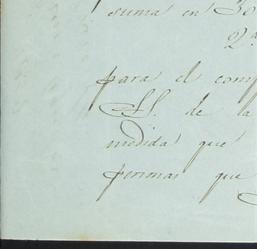 suma en 30
2ª
para el comp
SS. de la
medida que
personas que